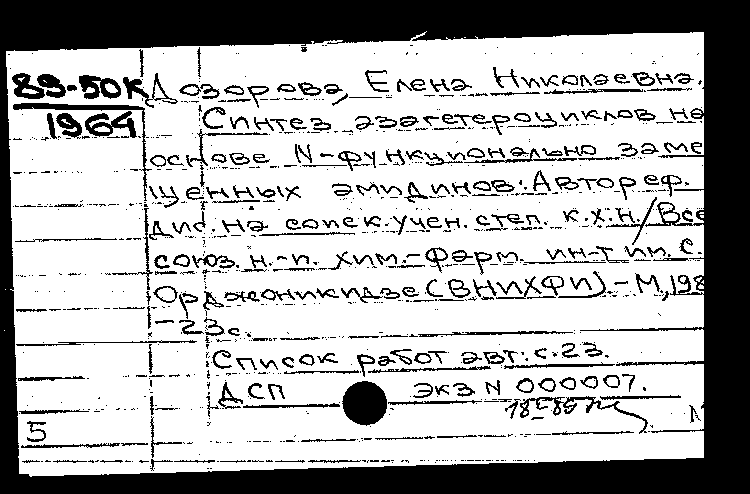 89-50к Дозорова, Елена Николаевна.
1964 Синтез азагетероциклов на
основе N-функционально заме
щенных амидинов: Автореф.
дис. на соиск. учен. степ. к.х.н. / Все
союз. н.-и. хим.-фарм. ин-т им. С.
Орджоникидзе (ВНИХФИ) - М, 198
- 23 с.
Список работ авт.: с. 23.
ДСП ЭКЗ N 000007.
5